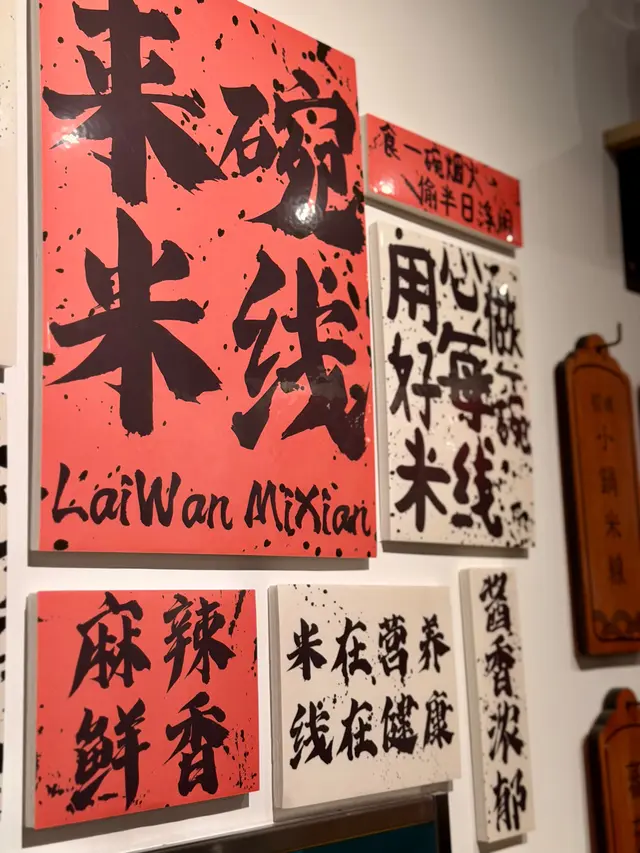 来碗
米线
LaiWan MiXian
食一碗烟火
偷半日浮闲
用心做
好每一碗
米线
麻辣
鲜香
米在营养
线在健康
醬香浓郁
小鍋米線